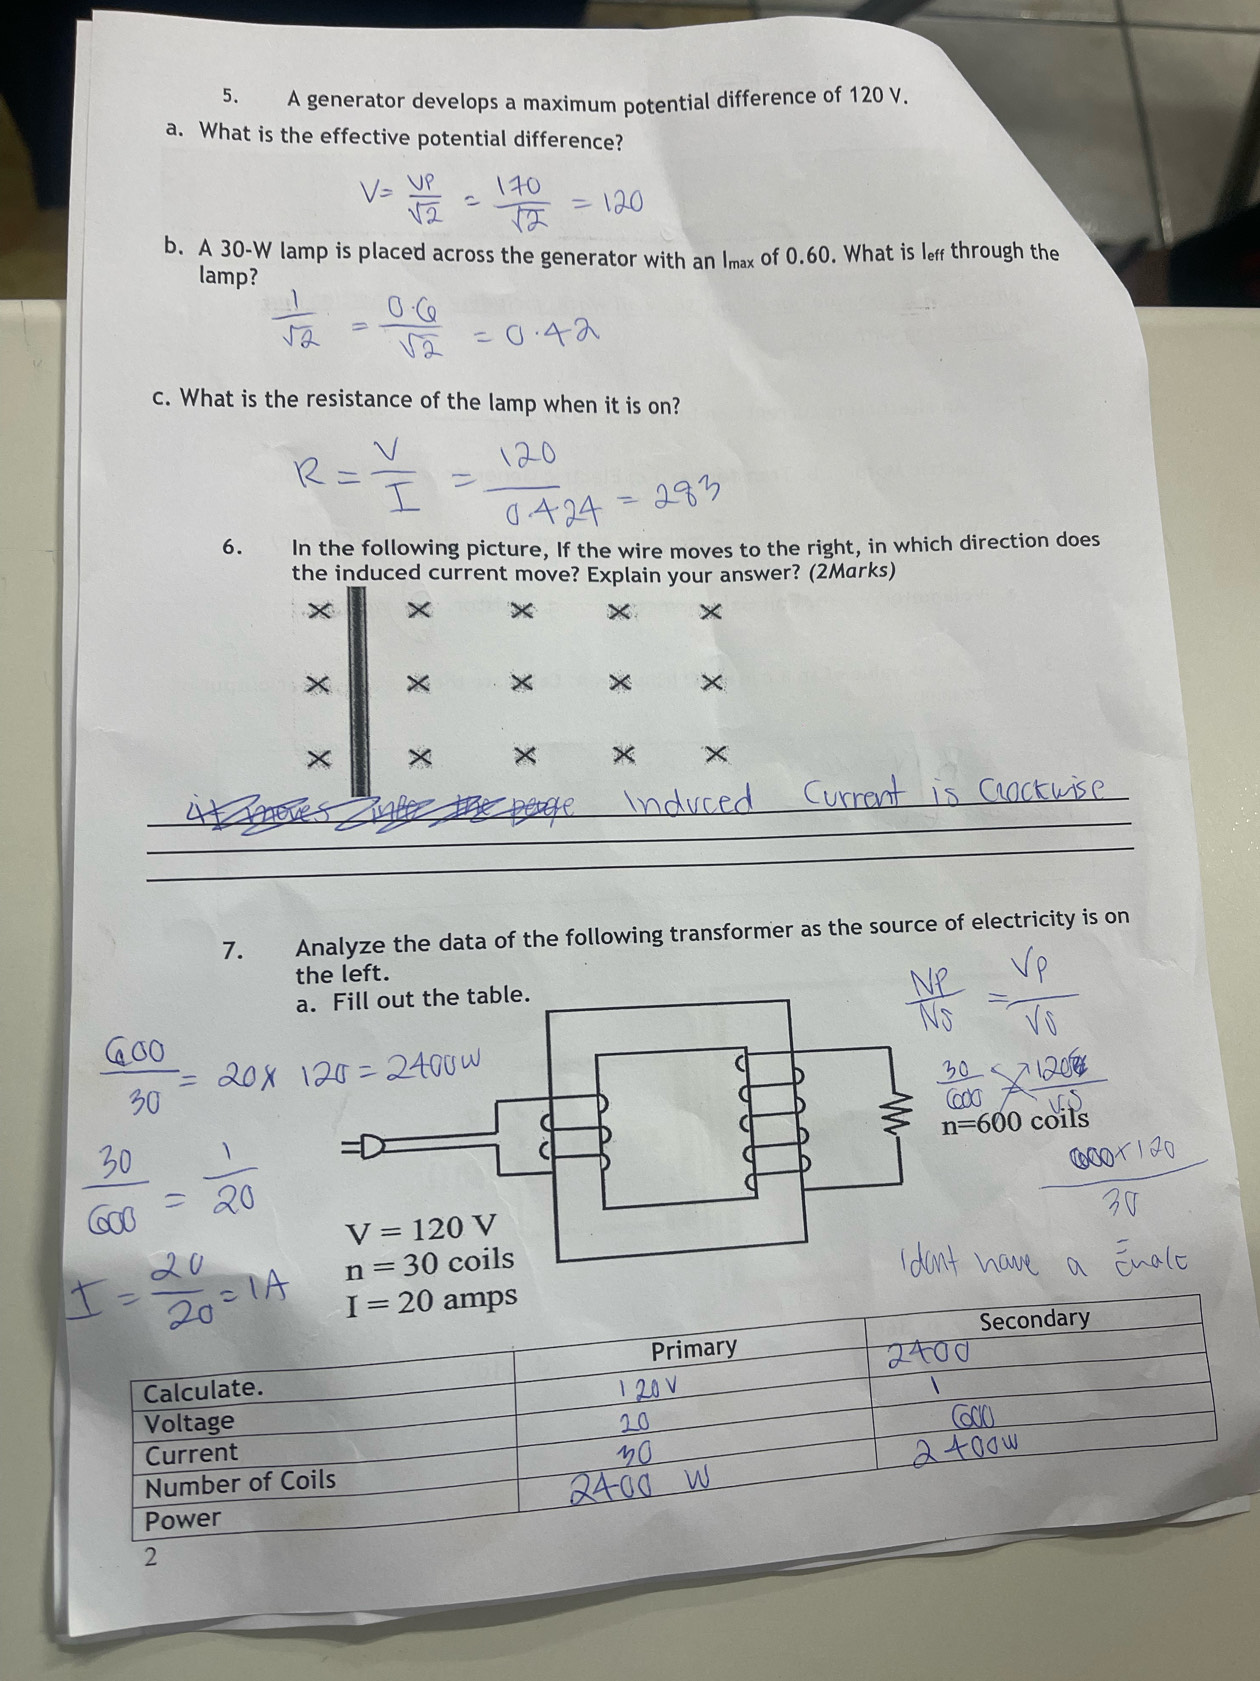 5. A generator develops a maximum potential difference of 120 V.
a. What is the effective potential difference?
V= VP/√2 = 170/√2 = 120
b. A 30-W lamp is placed across the generator with an Imax of 0.60. What is Ieff through the
lamp?
1/√2 = 0.6/√2 = 0.42
c. What is the resistance of the lamp when it is on?
R = V/I = 120/0.424 = 283
6. In the following picture, If the wire moves to the right, in which direction does
the induced current move? Explain your answer? (2Marks)
× × × × ×
× × × × ×
× × × × ×
it moves into the Induced Current is Clockwise
7. Analyze the data of the following transformer as the source of electricity is on
the left.
a. Fill out the table.
NP/NS = VP/VS
600/30 = 20× 120 = 2400W
30/600 120/VS
n=600 coils
600×120/30
30/600 = 1/20
I = 20/20 = 1A
V = 120 V
n = 30 coils
I = 20 amps
I dont have a
Primary Secondary
Calculate. 120V 2400
Voltage 20 1
Current 30 600
Number of Coils 2400 W 2400W
Power
2